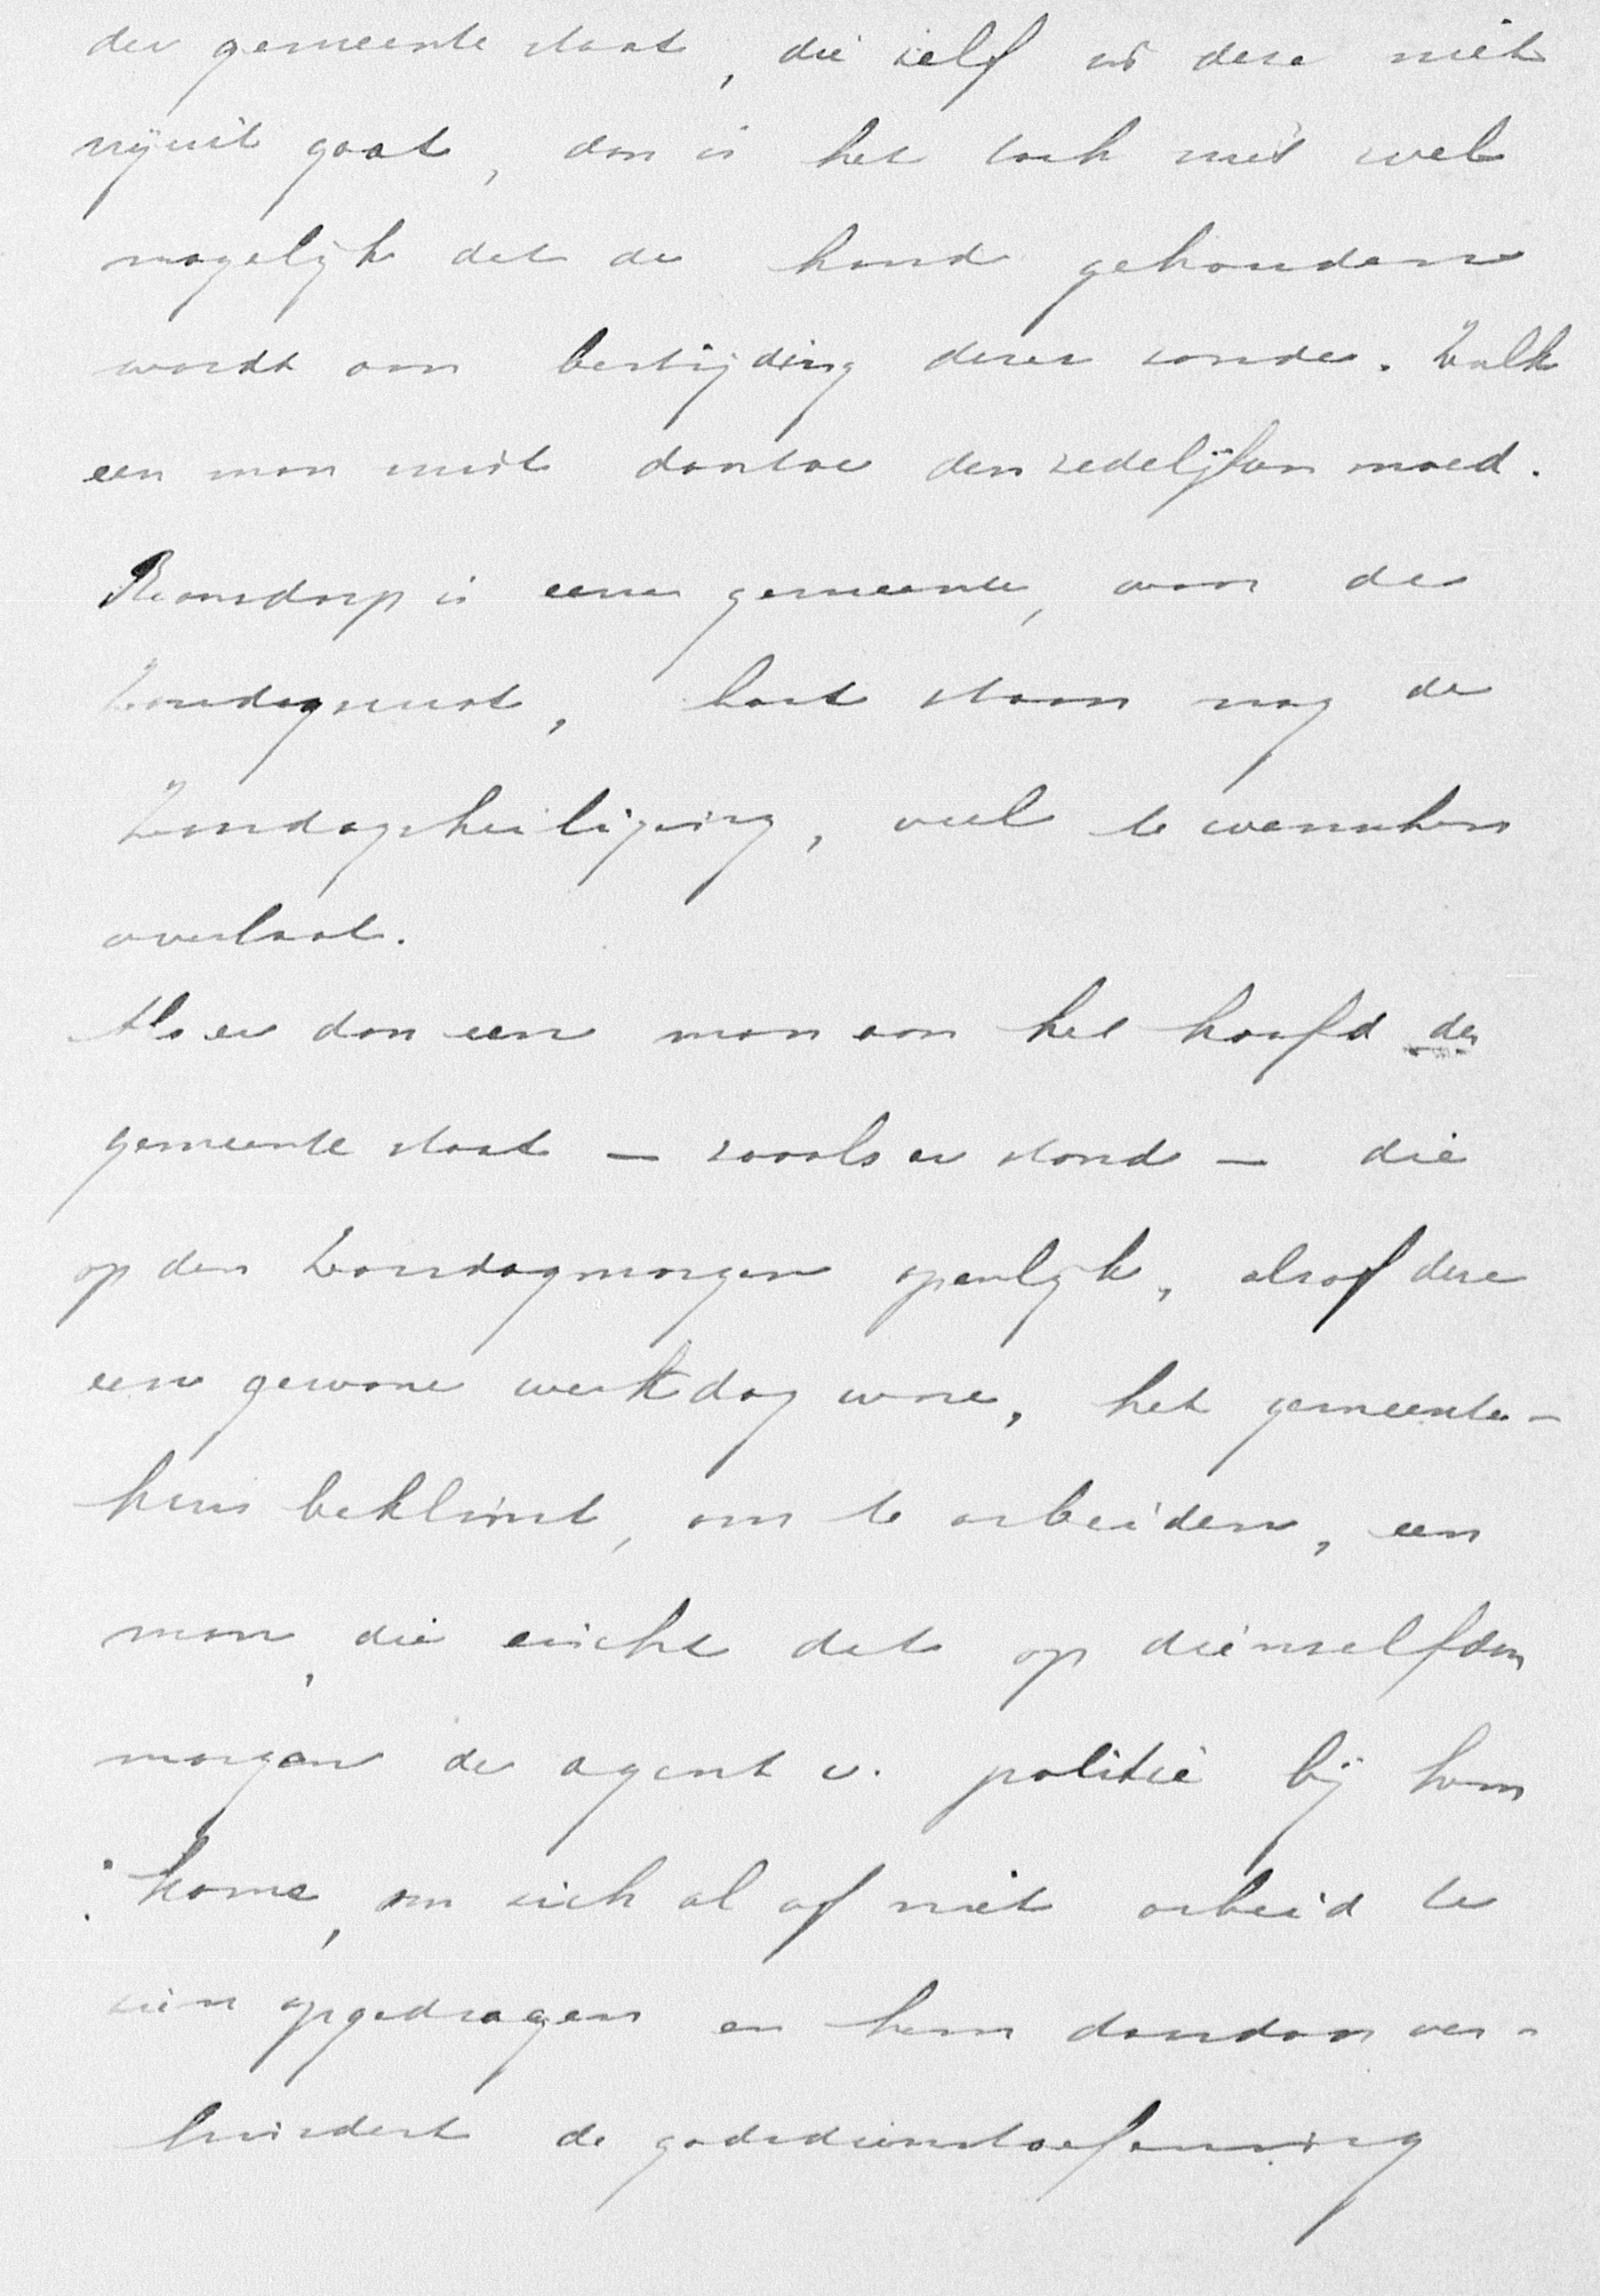 der gemeente staat, die zelf in deze niet
vrijuit gaat, dan is het toch niet wel
mogelijk dat de hand gehouden
wordt aan bestrijding dezer zonde. Zulk
een man mist daartoe den zedelijken moed.
Raamsdorp is eene gemeente, waar de
Zondagsrust, laat staan nog de
Zondagsheiliging, veel te wenschen
overlaat.
Als er dan een man aan het hoofd der
gemeente staat — zooals er stond — die
op den Zondagmorgen openlijk, alsof deze
een gewone werkdag ware, het gemeente-
huis beklimt, om te arbeiden, een
man, die eischt dat op dienzelfden
morgen de agent v. politie bij hem
kome, om zich al of niet arbeid te
zien opgedragen en hem daardoor ver-
hindert de godsdienstoefening